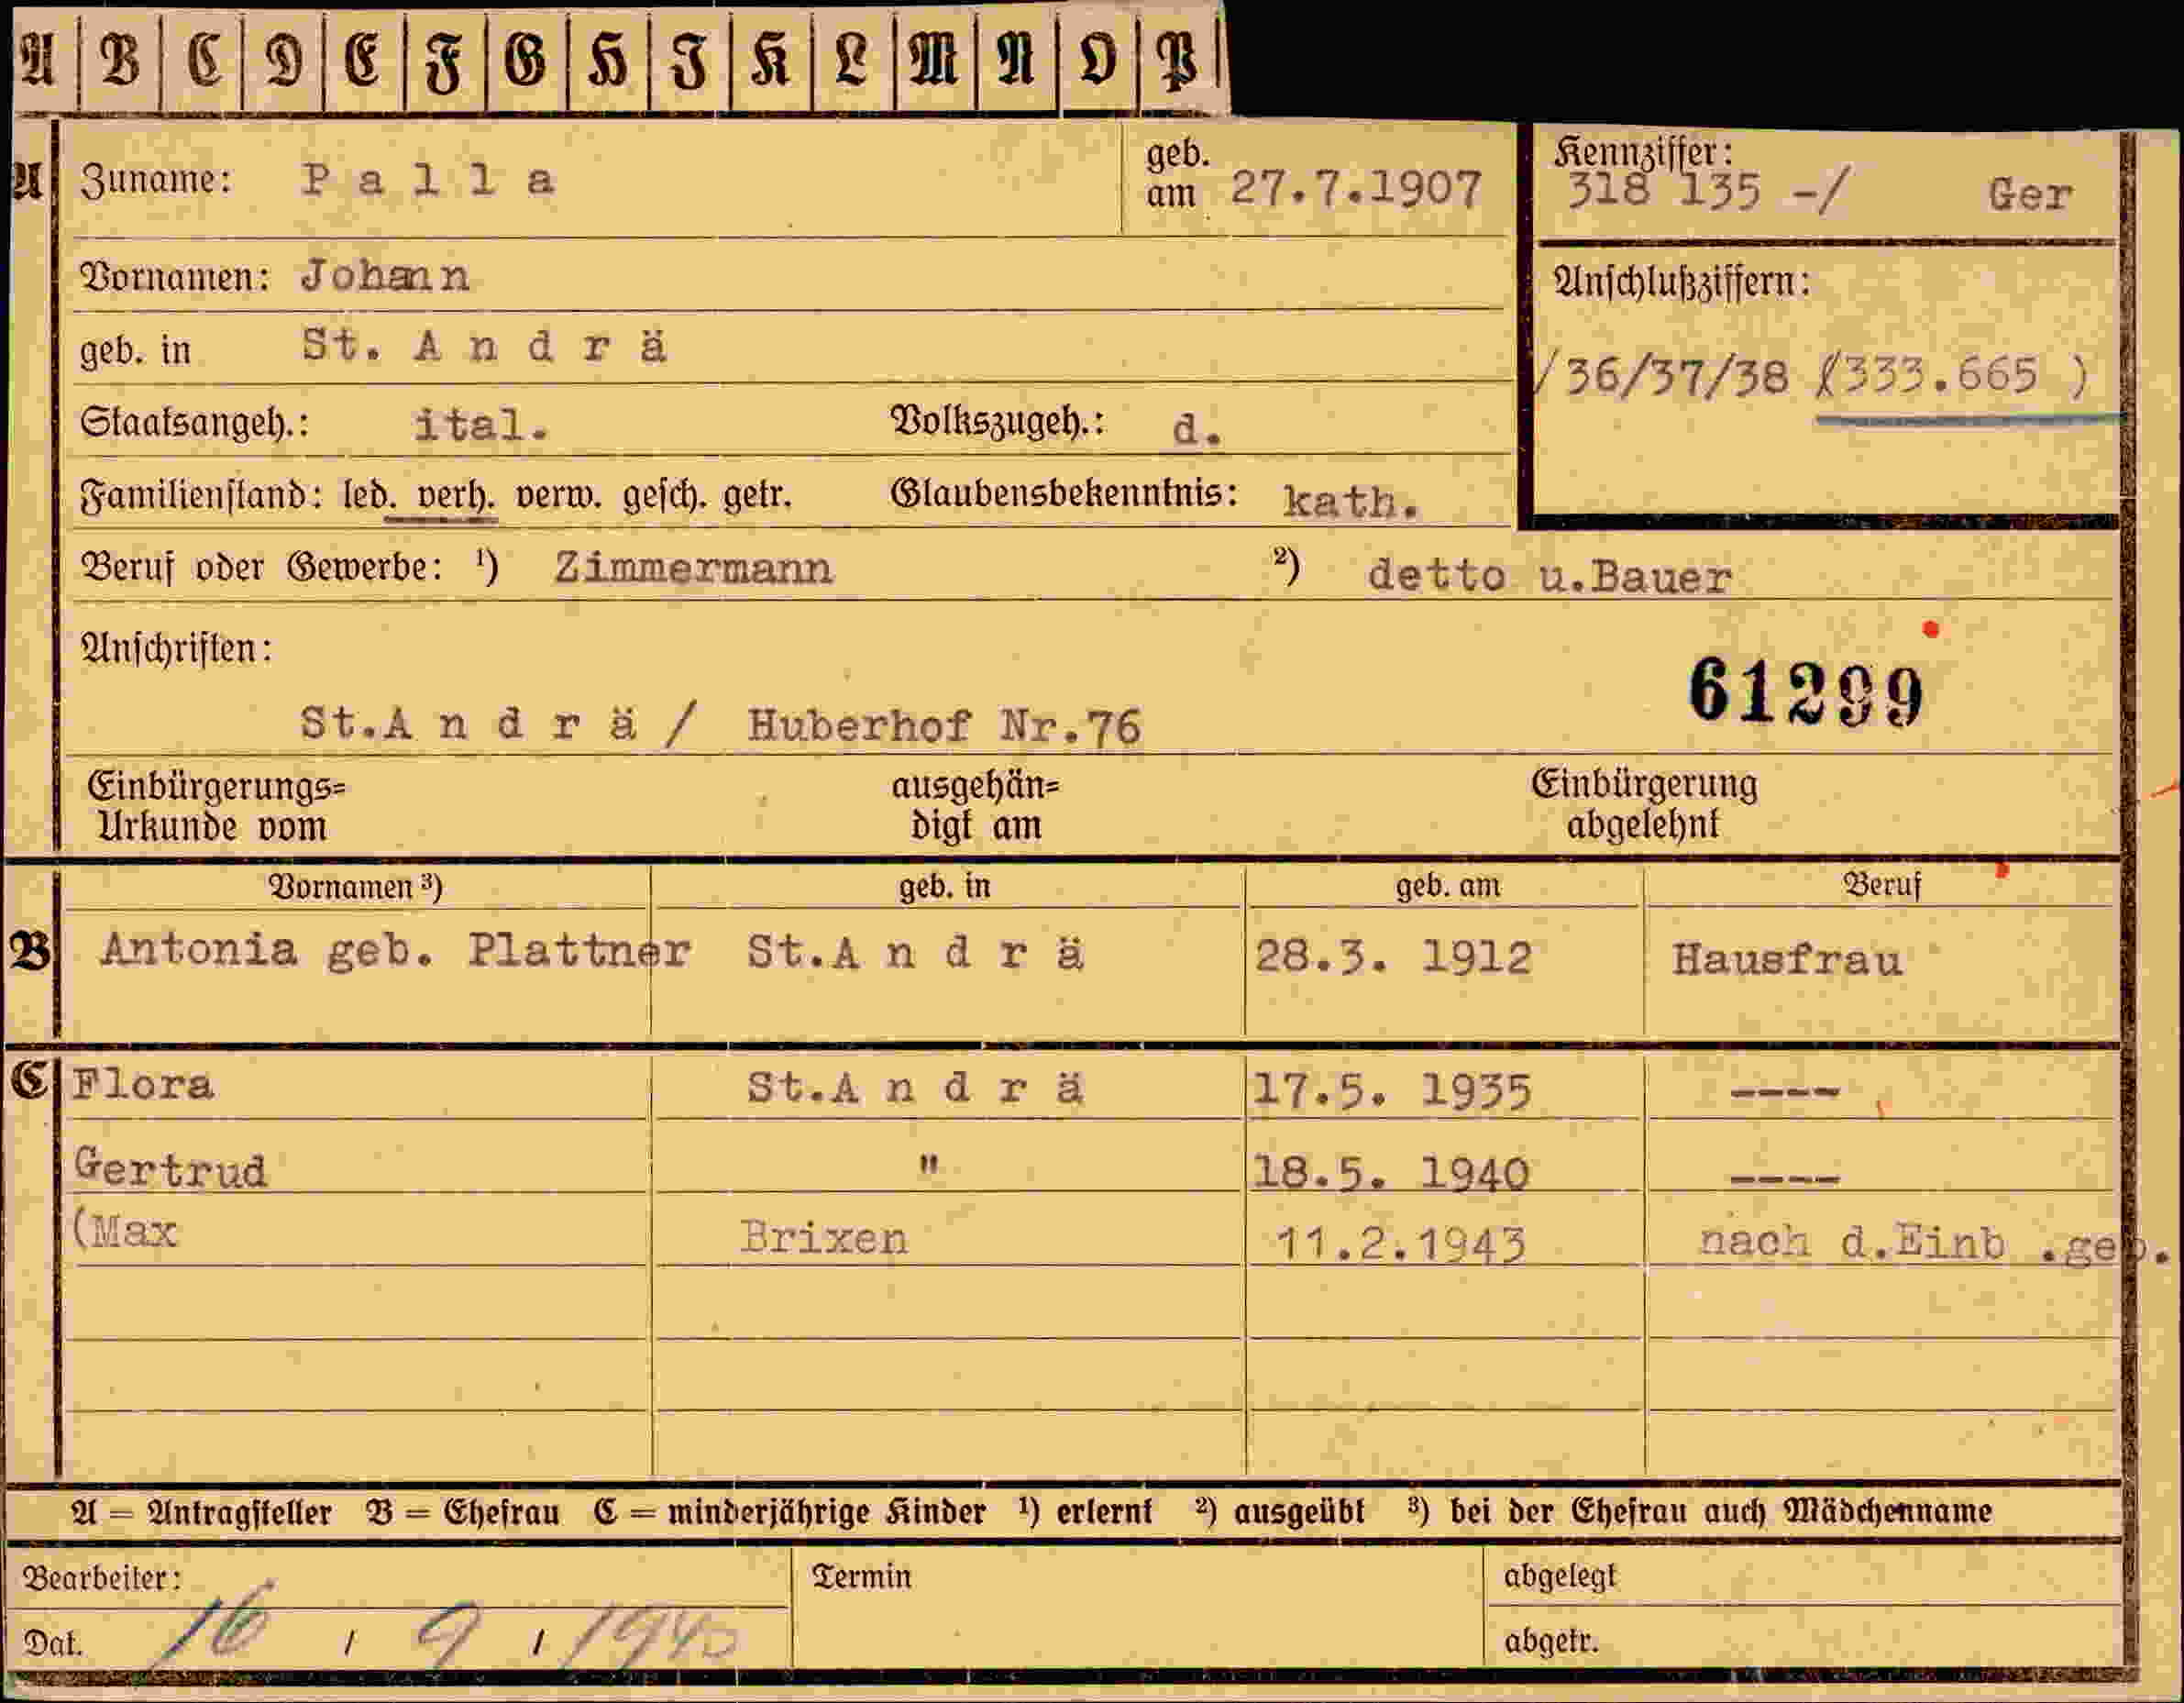 A B C D E F G H I K L M N O P
A Zuname: P a l l a geb. am 27.7.1907 Kennziffer: 318 135 -/ Ger
Vornamen: Johann Anschlußziffern:
geb. in St. A n d r ä /36/37/38 (333.665 )
Staatsangeh.: ital. Volkszugeh.: d.
Familienstand: led. verh. verw. gesch. getr. Glaubensbekenntnis: kath.
Beruf oder Gewerbe: ¹) Zimmermann ²) detto u.Bauer
Anschriften:
61299
St.A n d r ä / Huberhof Nr.76
Einbürgerungs= ausgehän= Einbürgerung
Urkunde vom digt am abgelehnt
Vornamen ³) geb. in geb. am Beruf
B Antonia geb. Plattner St.A n d r ä 28.3. 1912 Hausfrau
C Flora St.A n d r ä 17.5. 1935 ----
Gertrud " 18.5. 1940 ----
(Max Brixen 11.2.1943 nach d.Einb .geb.
A = Antragsteller B = Ehefrau C = minderjährige Kinder ¹) erlernt ²) ausgeübt ³) bei der Ehefrau auch Mädchenname
Bearbeiter: Termin abgelegt
Dat. 16 / 9 / 1940 abgetr.